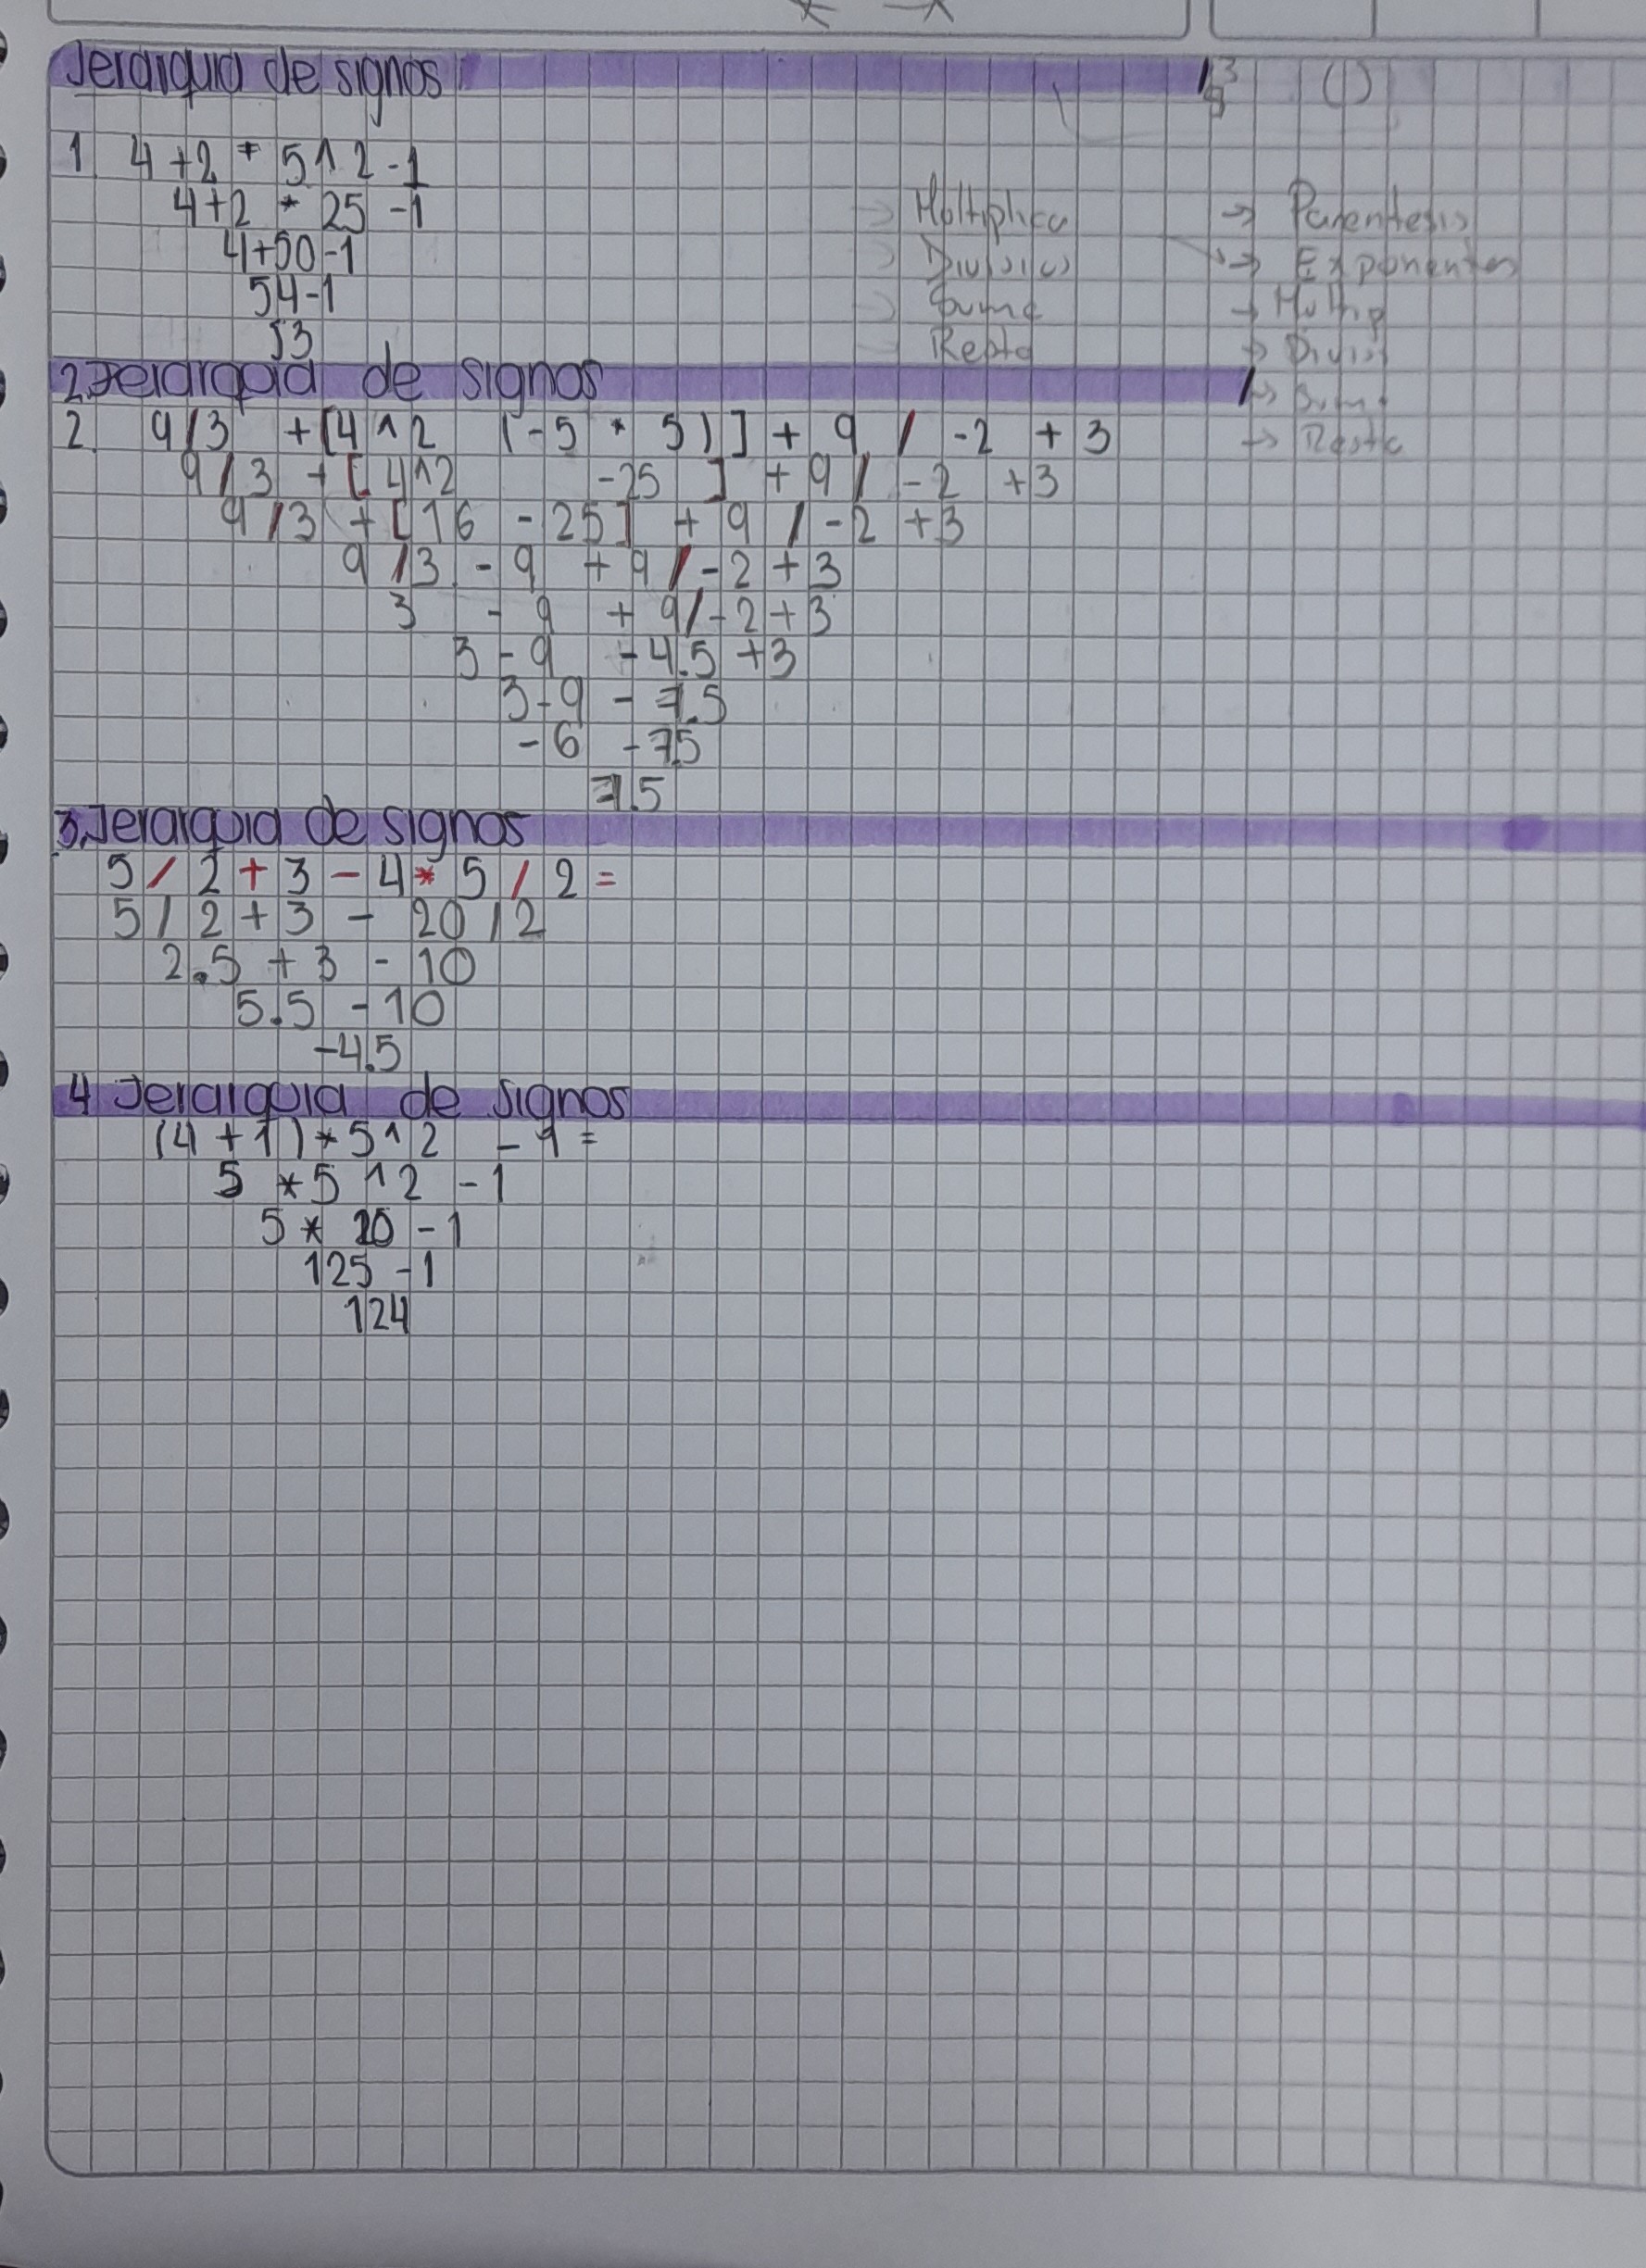 Jerarquia de signos
1. 4 + 2 * 5 ^ 2 - 1
4 + 2 * 25 - 1
4 + 50 - 1
54 - 1
53
→ Multiplica
→ Divisio
→ Suma
→ Resta
→ Parentesis
→ Exponentes
→ Multip
→ Divis
→ Suma
→ Resta
2. Jerarquia de signos
2. 9 / 3 + [4 ^ 2 (-5 * 5)] + 9 / -2 + 3
9 / 3 + [4 ^ 2 -25] + 9 / -2 + 3
9 / 3 + [16 - 25] + 9 / -2 + 3
9 / 3 - 9 + 9 / -2 + 3
3 - 9 + 9 / -2 + 3
3 - 9 - 4.5 + 3
3 - 9 - 7.5
- 6 - 7.5
7.5
3. Jerarquia de signos
5 / 2 + 3 - 4 * 5 / 2 =
5 / 2 + 3 - 20 / 2
2.5 + 3 - 10
5.5 - 10
-4.5
4 Jerarquia de signos
(4 + 1) * 5 ^ 2 - 1 =
5 * 5 ^ 2 - 1
5 * 25 - 1
125 - 1
124